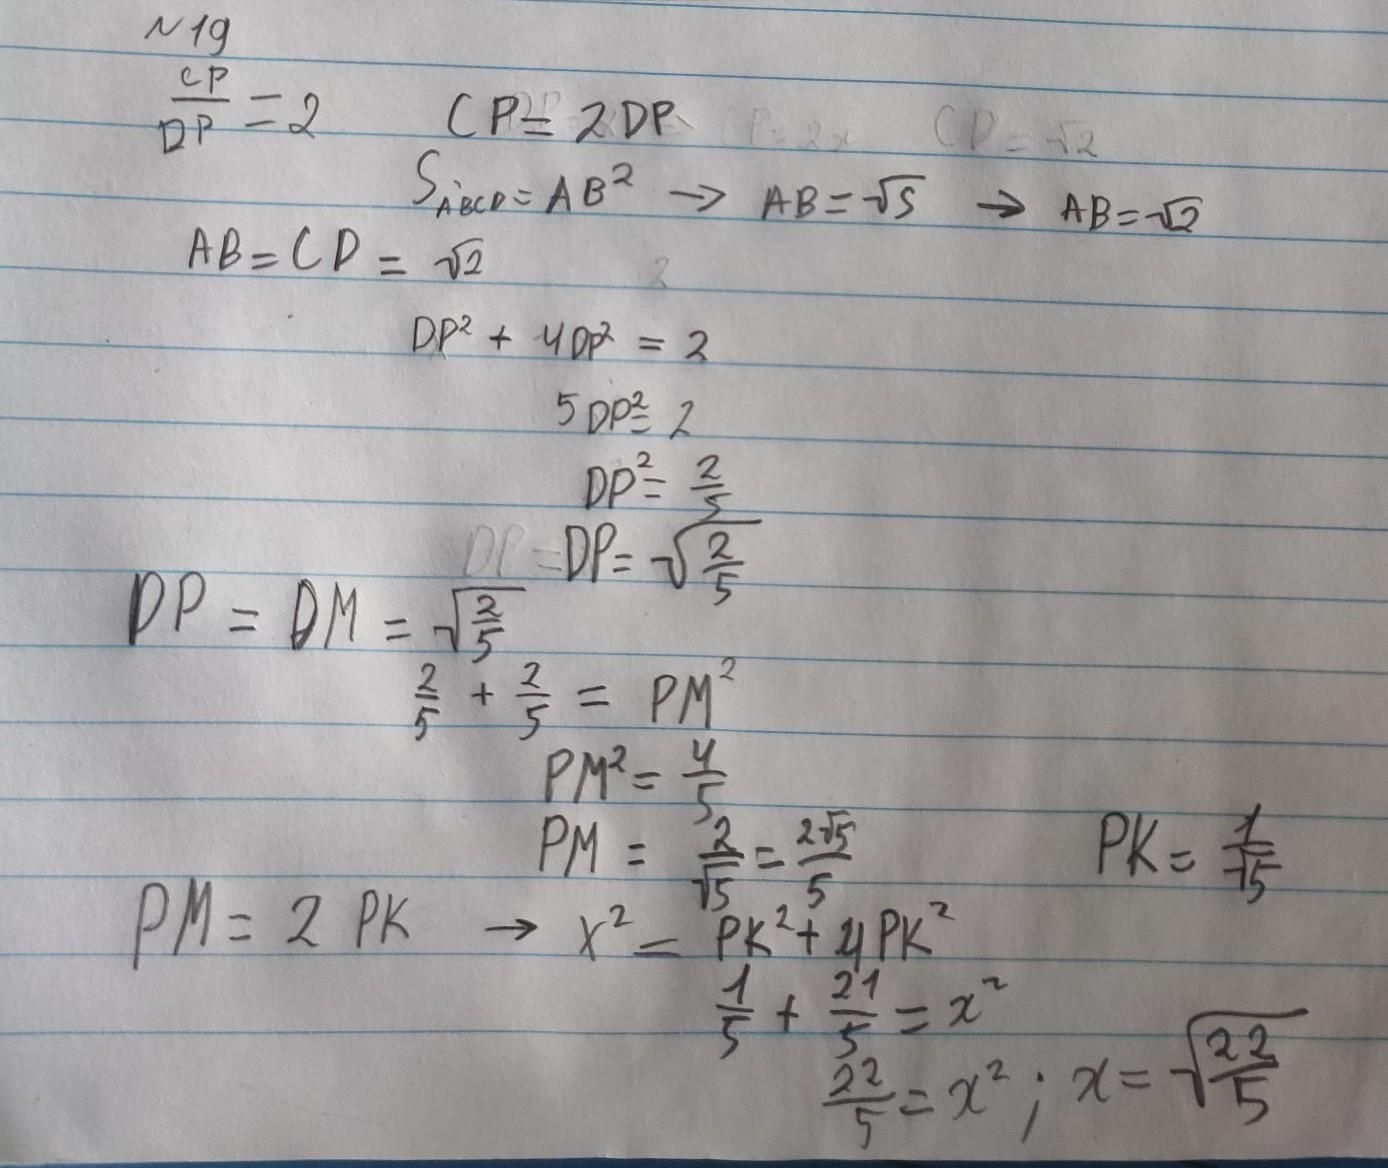 N19
CP/DP = 2 CP = 2DP CP = 2x CD = √2
S_ABCD = AB² → AB = √S → AB = √2
AB = CD = √2
DP² + 4DP² = 2
5DP² = 2
DP² = 2/5
DP = DP = √(2/5)
DP = DM = √(2/5)
2/5 + 2/5 = PM²
PM² = 4/5
PM = 2/√5 = 2√5/5 PK = 1/√5
PM = 2 PK → x² = PK² + 4PK²
1/5 + 21/5 = x²
22/5 = x² ; x = √(22/5)